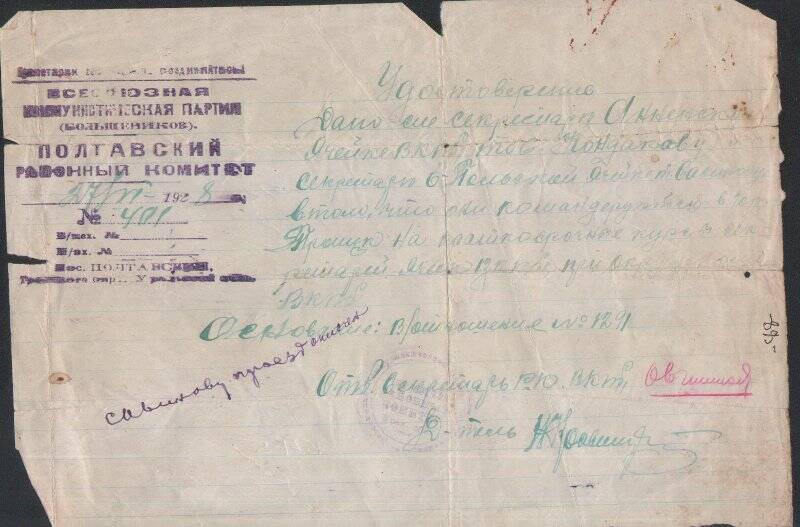 Пролетарии всех стран, соединяйтесь!
ВСЕСОЮЗНАЯ
КОММУНИСТИЧЕСКАЯ ПАРТИЯ
(БОЛЬШЕВИКОВ).
ПОЛТАВСКИЙ
РАЙОННЫЙ КОМИТЕТ
27/VI 1928 г.
№ 401
В/исх. №
Н/вх. №
Пос. ПОЛТАВСКИЙ,
Троицкого окр. Уральской обл.
Удостоверение
Дано сие секретарю
Ячейке ВКПб тов Кондакову
секретарю б-Польской Ячейке
в том, что они командируются в гор
Троицк на краткосрочные курсы сек
ретарей ячеек ВКПб при
ВКПб
Основание: В/отношение № 1291
Савинову проезд оплачен
Отв. Секретарь РК ВКПб
Д-тель
-85-